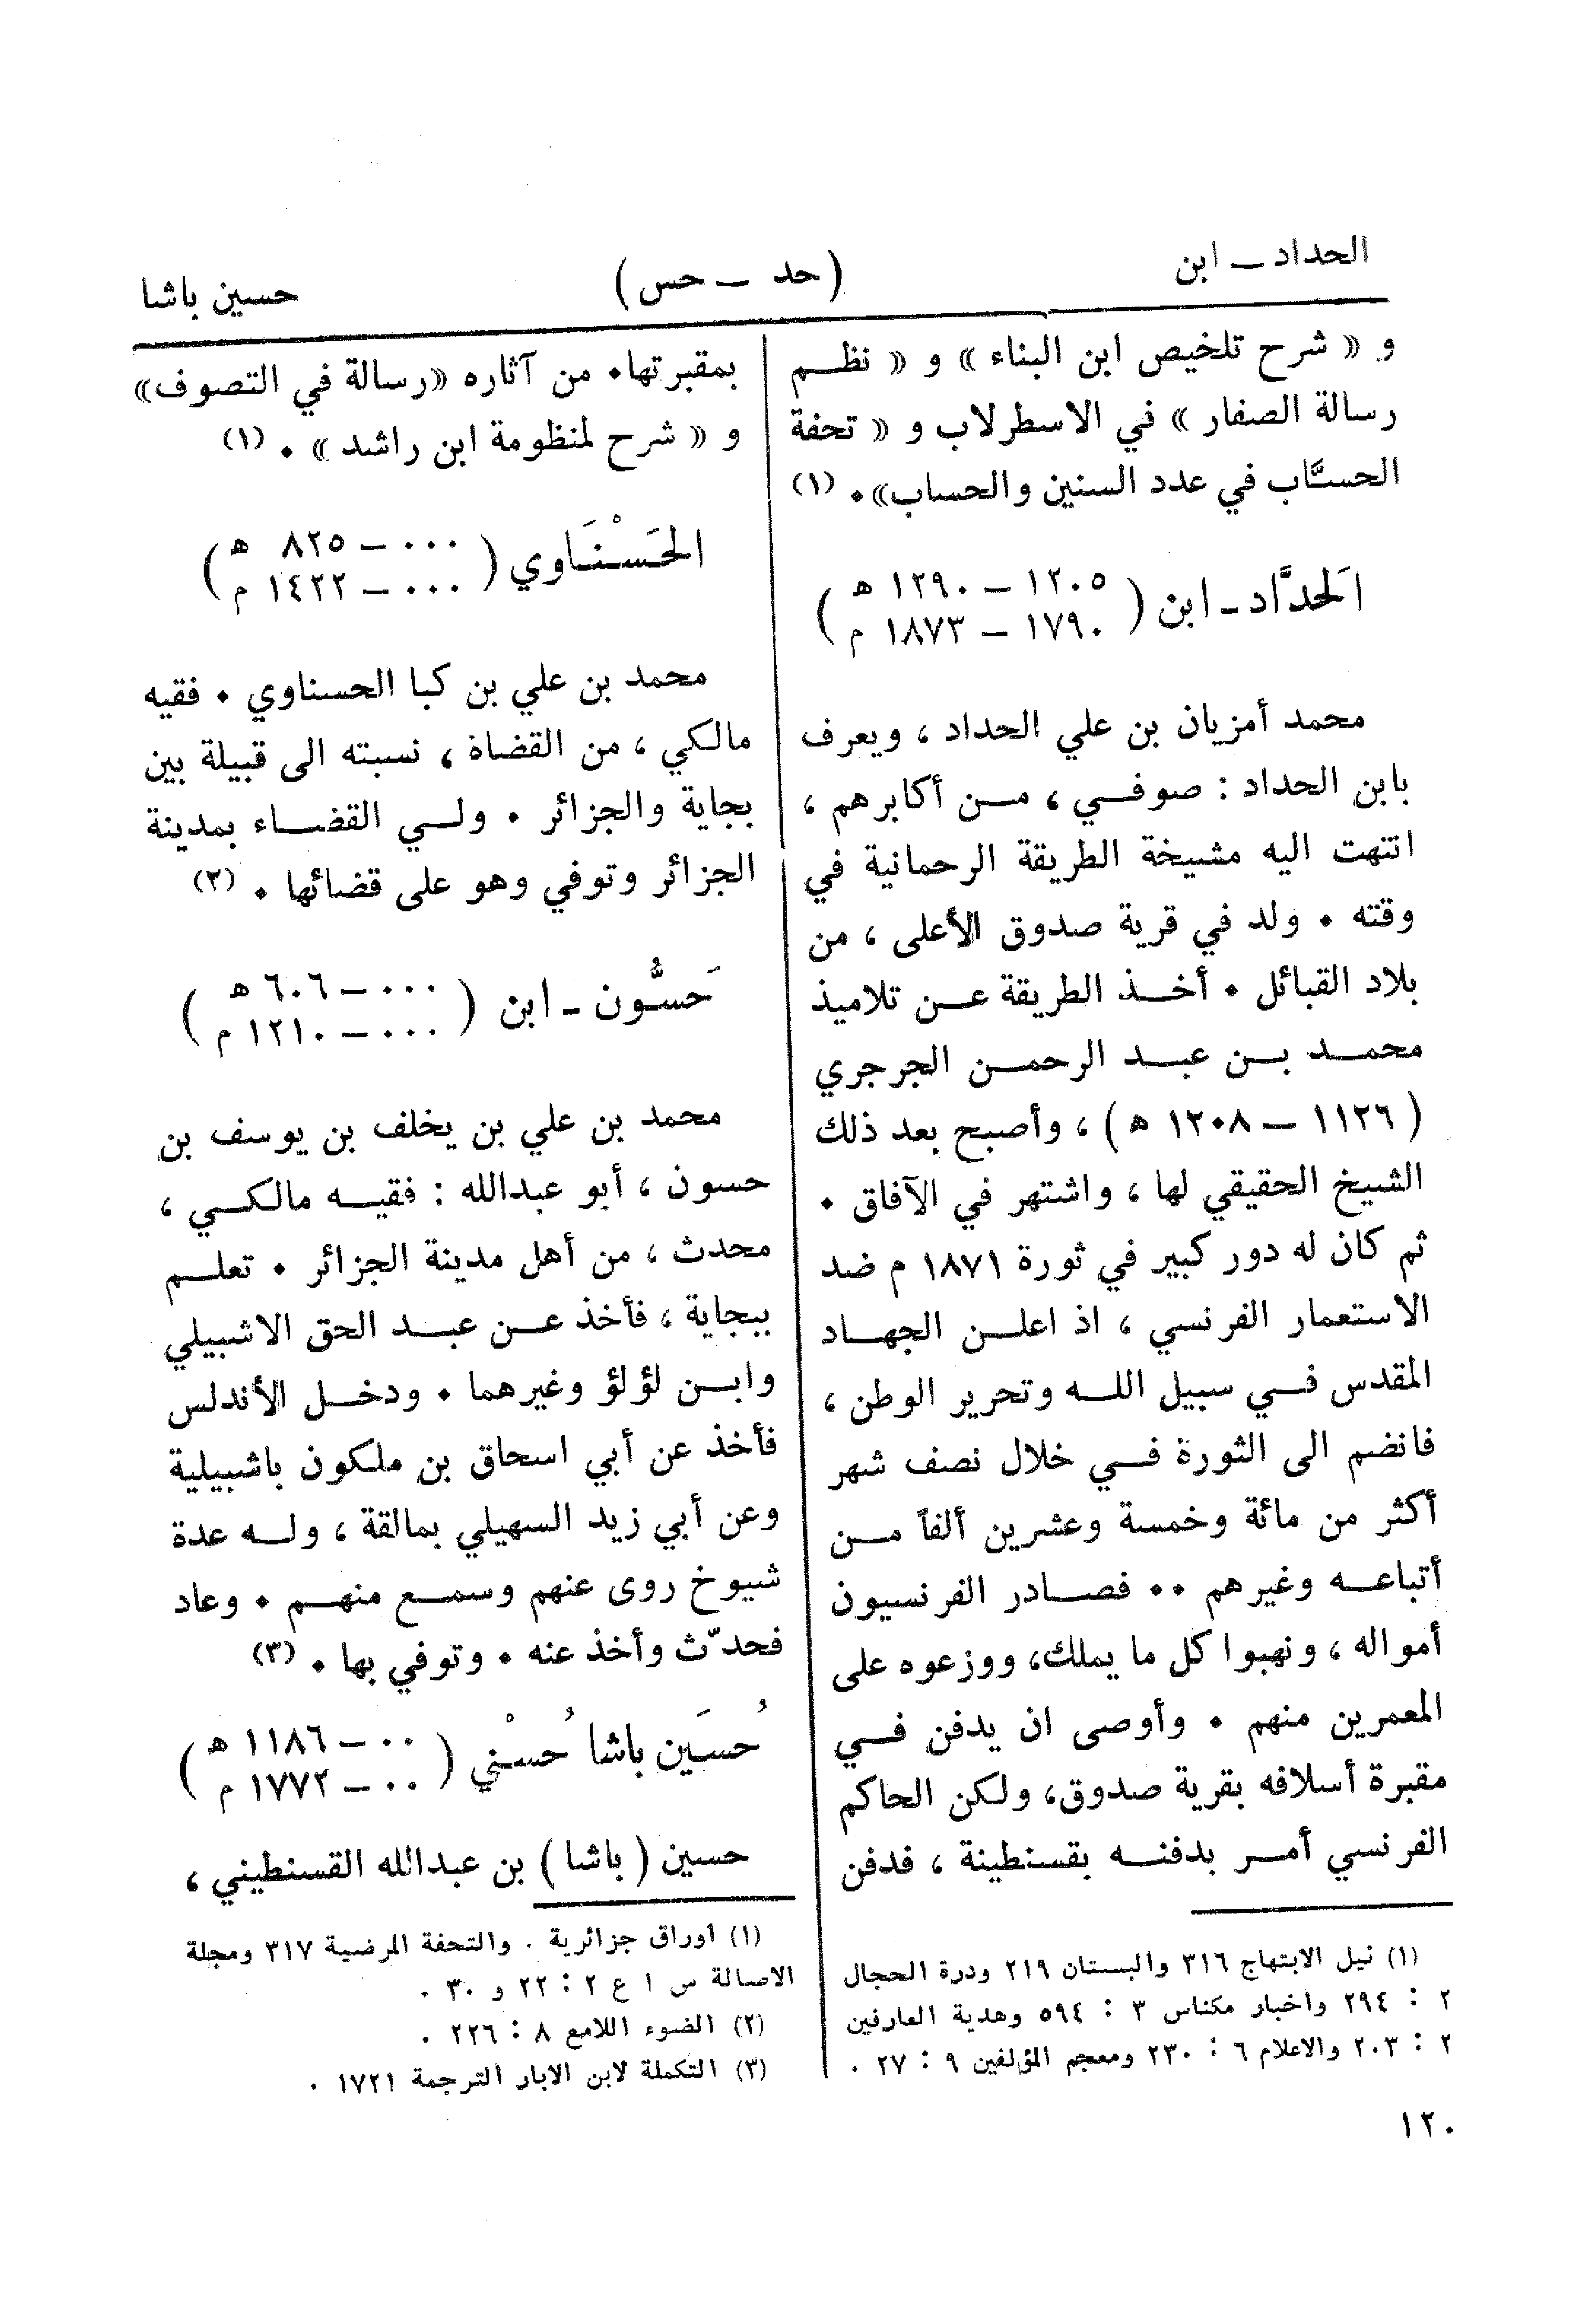 الحداد ـ ابن
( حد ـ حس )
حسين باشا
و « شرح تلخيص ابن البناء » و « نظم
رسالة الصفار » في الاسطرلاب و « تحفة
الحسَّاب في عدد السنين والحساب». (١)
اَلحدَّاد ـ ابن ( ١٢٠٥ ـ ١٢٩٠ هـ
١٧٩٠ ـ ١٨٧٣ م )
محمد أمزيان بن علي الحداد ، ويعرف
بابن الحداد : صوفي ، من أكابرهم ،
انتهت اليه مشيخة الطريقة الرحمانية في
وقته . ولد في قرية صدوق الأعلى ، من
بلاد القبائل . أخذ الطريقة عن تلاميذ
محمد بن عبد الرحمن الجرجري
( ١١٢٦ ـ ١٢٠٨ هـ ) ، وأصبح بعد ذلك
الشيخ الحقيقي لها ، واشتهر في الآفاق .
ثم كان له دور كبير في ثورة ١٨٧١ م ضد
الاستعمار الفرنسي ، اذ اعلن الجهاد
المقدس في سبيل الله وتحرير الوطن ،
فانضم الى الثورة في خلال نصف شهر
أكثر من مائة وخمسة وعشرين ألفاً من
أتباعه وغيرهم .. فصادر الفرنسيون
أمواله ، ونهبوا كل ما يملك، ووزعوه على
المعمرين منهم . وأوصى ان يدفن في
مقبرة أسلافه بقرية صدوق، ولكن الحاكم
الفرنسي أمر بدفنه بقسنطينة ، فدفن
(١) نيل الابتهاج ٣١٦ والبستان ٢١٩ ودرة الحجال
٢ : ٢٩٤ واخبار مكناس ٣ : ٥٩٤ وهدية العارفين
٢ : ٢٠٣ والاعلام ٦ : ٢٣٠ ومعجم المؤلفين ٩ : ٢٧ .
بمقبرتها. من آثاره «رسالة في التصوف»
و « شرح لمنظومة ابن راشد » . (١)
الحَسْنَاوي ( ٠٠٠ ـ ٨٢٥ هـ
٠٠٠ ـ ١٤٢٢ م )
محمد بن علي بن كبا الحسناوي . فقيه
مالكي ، من القضاة ، نسبته الى قبيلة بين
بجاية والجزائر . ولي القضاء بمدينة
الجزائر وتوفي وهو على قضائها . (٢)
حَسُّون ـ ابن ( ٠٠٠ ـ ٦٠٦ هـ
٠٠٠ ـ ١٢١٠ م )
محمد بن علي بن يخلف بن يوسف بن
حسون ، أبو عبدالله : فقيه مالكي ،
محدث ، من أهل مدينة الجزائر . تعلم
ببجاية ، فأخذ عن عبد الحق الاشبيلي
وابن لؤلؤ وغيرهما . ودخل الأندلس
فأخذ عن أبي اسحاق بن ملكون باشبيلية
وعن أبي زيد السهيلي بمالقة ، وله عدة
شيوخ روى عنهم وسمع منهم . وعاد
فحدّث وأخذ عنه . وتوفي بها . (٣)
حُسَين باشا حُسْني ( ٠٠ ـ ١١٨٦ هـ
٠٠ ـ ١٧٧٢ م )
حسين ( باشا ) بن عبدالله القسنطيني ،
(١) أوراق جزائرية . والتحفة المرضية ٣١٧ ومجلة
الاصالة س ١ ع ٢ : ٢٢ و ٣٠ .
(٢) الضوء اللامع ٨ : ٢٢٦ .
(٣) التكملة لابن الابار الترجمة ١٧٢١ .
١٢٠